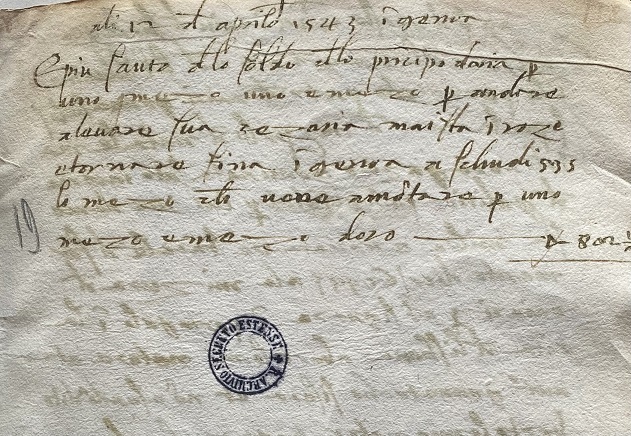 adi 12 d aprilo 1543 i genoa
E piu fauto dlo soldo dlo pricipo doria p
uno mezo uno e mezo p andare
a levare sua zezaria maista i roze
e tornare fina i genoa a schudi 535
lo mezo che vene amotare p uno
mezo e mezo doro 802½
19
R. ARCHIVIO SEGRETO ESTENSE